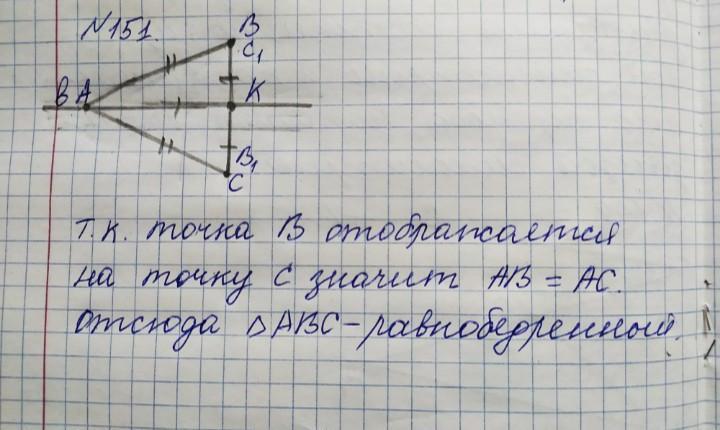 №151.
B
C₁
B A
K
B₁
C
т.к. точка B отображается
на точку C значит AB = AC.
отсюда △ABC-равнобедренный.